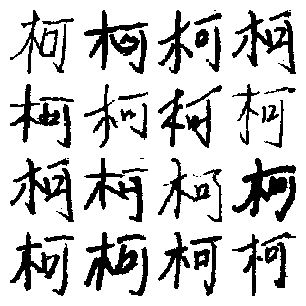 柯柯柯柯
柯柯柯柯
柯柯柯柯
柯柯柯柯